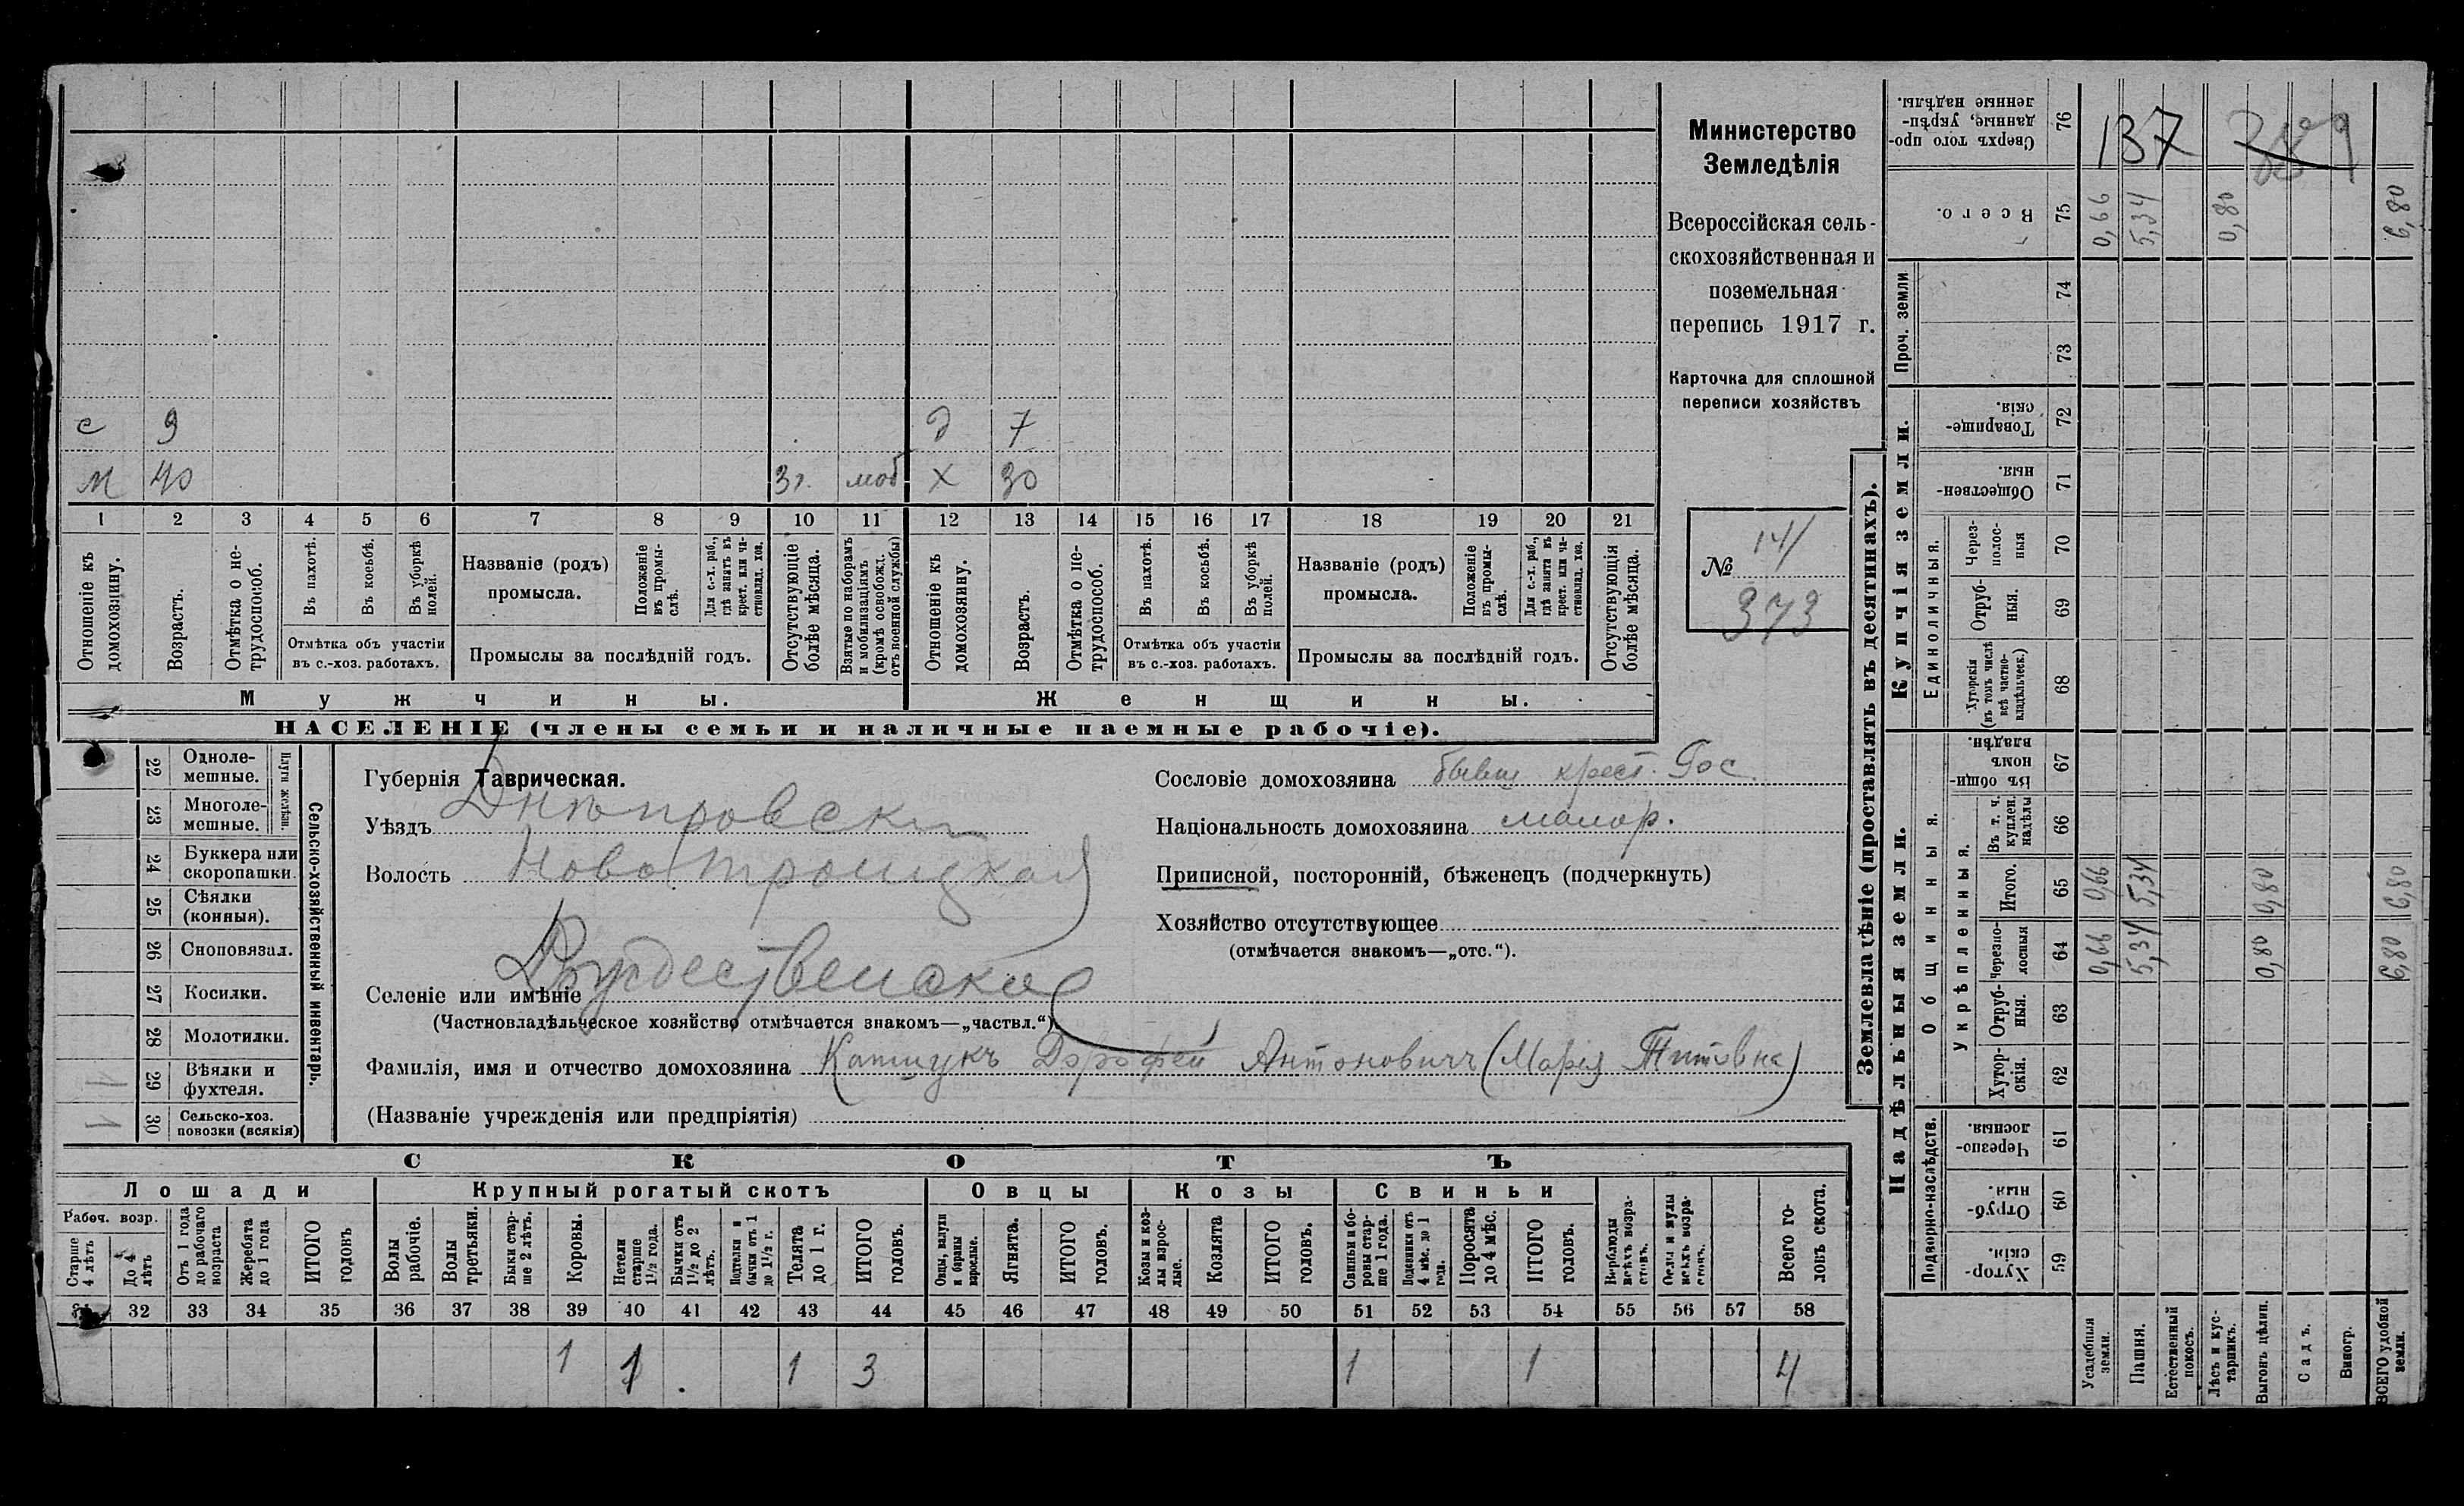 Министерство
Земледѣлія
Всероссійская сель-
скохозяйственная и
поземельная
перепись 1917 г.
Карточка для сплошной
переписи хозяйствъ
№ 141
373
с 9 д 7
м 40 3 г. моб х 30
1 2 3 4 5 6 7 8 9 10 11 12 13 14 15 16 17 18 19 20 21
Отношеніе къ домохозяину.
Возрастъ.
Отмѣтка о не-трудоспособ.
Въ пахотѣ.
Въ косьбѣ.
Въ уборкѣ полей.
Отмѣтка объ участіи
въ с.-хоз. работахъ.
Названіе (родъ)
промысла.
Положеніе въ промы-слѣ.
Для с.-х. раб., гдѣ занятъ въ крест. или ча-стновлад. хоз.
Промыслы за послѣдній годъ.
Отсутствующіе болѣе мѣсяца.
Взятые по наборамъ и мобилизаціямъ (кромѣ освобожд. отъ военной службы)
Отношеніе къ домохозяину.
Возрастъ.
Отмѣтка о не-трудоспособ.
Въ пахотѣ.
Въ косьбѣ.
Въ уборкѣ полей.
Отмѣтка объ участіи
въ с.-хоз. работахъ.
Названіе (родъ)
промысла.
Положеніе въ промы-слѣ.
Для с.-х. раб., гдѣ занята въ крест. или ча-стновлад. хоз.
Промыслы за послѣдній годъ.
Отсутствующія болѣе мѣсяца.
Мужчины.
Женщины.
НАСЕЛЕНІЕ (члены семьи и наличные наемные рабочіе).
22 Одноле-мешные.
23 Многоле-мешные.
Плуги желѣзн.
24 Буккера или скоропашки.
25 Сѣялки (конныя).
26 Сноповязал.
27 Косилки.
28 Молотилки.
29 Вѣялки и фухтеля.
30 Сельско-хоз. повозки (всякія)
Сельско-хозяйственный инвентарь.
Губернія Таврическая.
Уѣздъ Днѣпровск
Волость Ново Троицкая
Селеніе или имѣніе Рождественское
(Частновладѣльческое хозяйство отмѣчается знакомъ—„частвл.“)
Фамилія, имя и отчество домохозяина Катущукъ Дорофей Антоновичъ (Марія Титовна)
(Названіе учрежденія или предпріятія)
Сословіе домохозяина бывш крест. Гос
Національность домохозяина малор.
Приписной, посторонній, бѣженецъ (подчеркнуть)
Хозяйство отсутствующее
(отмѣчается знакомъ—„отс.“).
СКОТЪ
Лошади
Крупный рогатый скотъ
Овцы
Козы
Свиньи
Рабоч. возр.
Старше 4 лѣтъ
До 4 лѣтъ
Отъ 1 года до рабочаго возраста
Жеребята до 1 года
ИТОГО головъ
Волы рабочіе.
Волы третьяки.
Быки стар-ше 2 лѣтъ.
Коровы.
Нетели старше 1½ года.
Бычки отъ 1½ до 2 лѣтъ.
Подтелки и бычки отъ 1 до 1½ г.
Телята до 1 г.
ИТОГО головъ.
Овцы, валухи и бараны взрослые.
Ягнята.
ИТОГО головъ.
Козы и коз-лы взрос-лые.
Козлята
ИТОГО головъ.
Свиньи и бо-ровы стар-ше 1 года.
Подсвинки отъ 4 мѣс. до 1 года.
Поросята до 4 мѣс.
ИТОГО головъ.
Верблюды всѣхъ возра-стовъ.
Ослы и мулы всѣхъ возра-стовъ.
Всего го-ловъ скота.
32 33 34 35 36 37 38 39 40 41 42 43 44 45 46 47 48 49 50 51 52 53 54 55 56 57 58
1 1 1 3 1 1 4
Землевладѣніе (проставлять въ десятинахъ).
137
Сверхъ того про-данные, укрѣп-ленные надѣлы. 76
Всего. 75 0,66 5,34 0,80 6,80
Проч. земли
74
73
Купчія земли.
Товарище-скія. 72
Обществен-ныя. 71
Единоличныя.
Через-полос-ныя 70
Отруб-ныя. 69
Хуторскія (въ томъ числѣ всѣ частно-владѣльческ.) 68
Надѣльныя земли.
Общинныя.
Въ общи-номъ владѣн. 67
Укрѣпленныя.
Въ т. ч. куплен. надѣлы 66
Итого. 65 0,66 5,34 0,80 6,80
Черезпо-лосныя 64 0,66 5,34 0,80 6,80
Отруб-ныя. 63
Хутор-скія. 62
Подворно-наслѣдств.
Черезпо-лосныя. 61
Отруб-ныя. 60
Хутор-скія. 59
Усадебныя земли.
Пашня.
Естественный покосъ.
Лѣсъ и кус-тарникъ.
Выгонъ цѣлин.
Садъ.
Виногр.
ВСЕГО удобной земли.